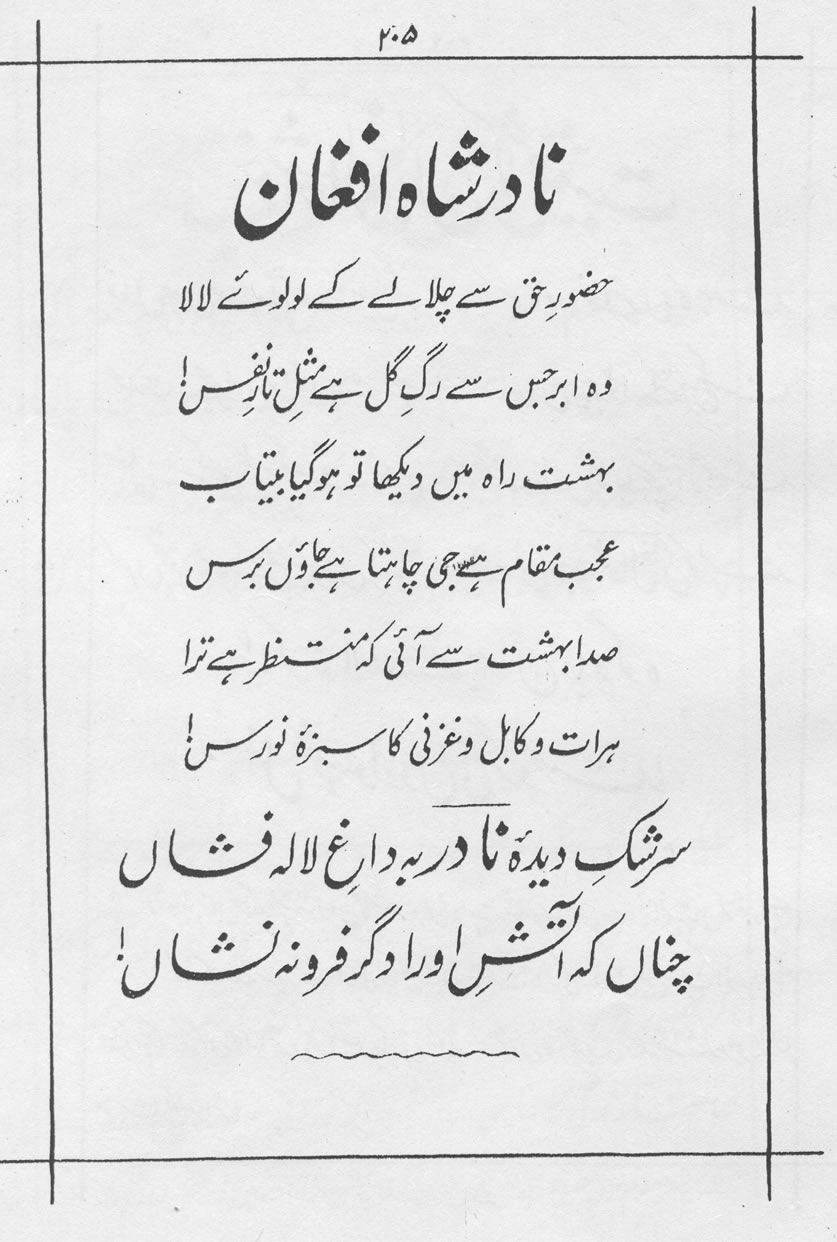 ۲۰۵
نادر شاہ افغان
حضورِ حق سے چلا لے کے لولوئے لالا
وہ ابر جس سے رگِ گل ہے مثلِ تارِ نفس!
بہشت راہ میں دیکھا تو ہو گیا بیتاب
عجب مقام ہے جی چاہتا ہے جاؤں برس
صدا بہشت سے آئی کہ منتظر ہے ترا
ہرات و کابل و غزنی کا سبزۂ نورس!
سرشکِ دیدۂ نادر بہ داغِ لالہ فشاں
چناں کہ آتشِ او را دگر فرو نہ نشاں!